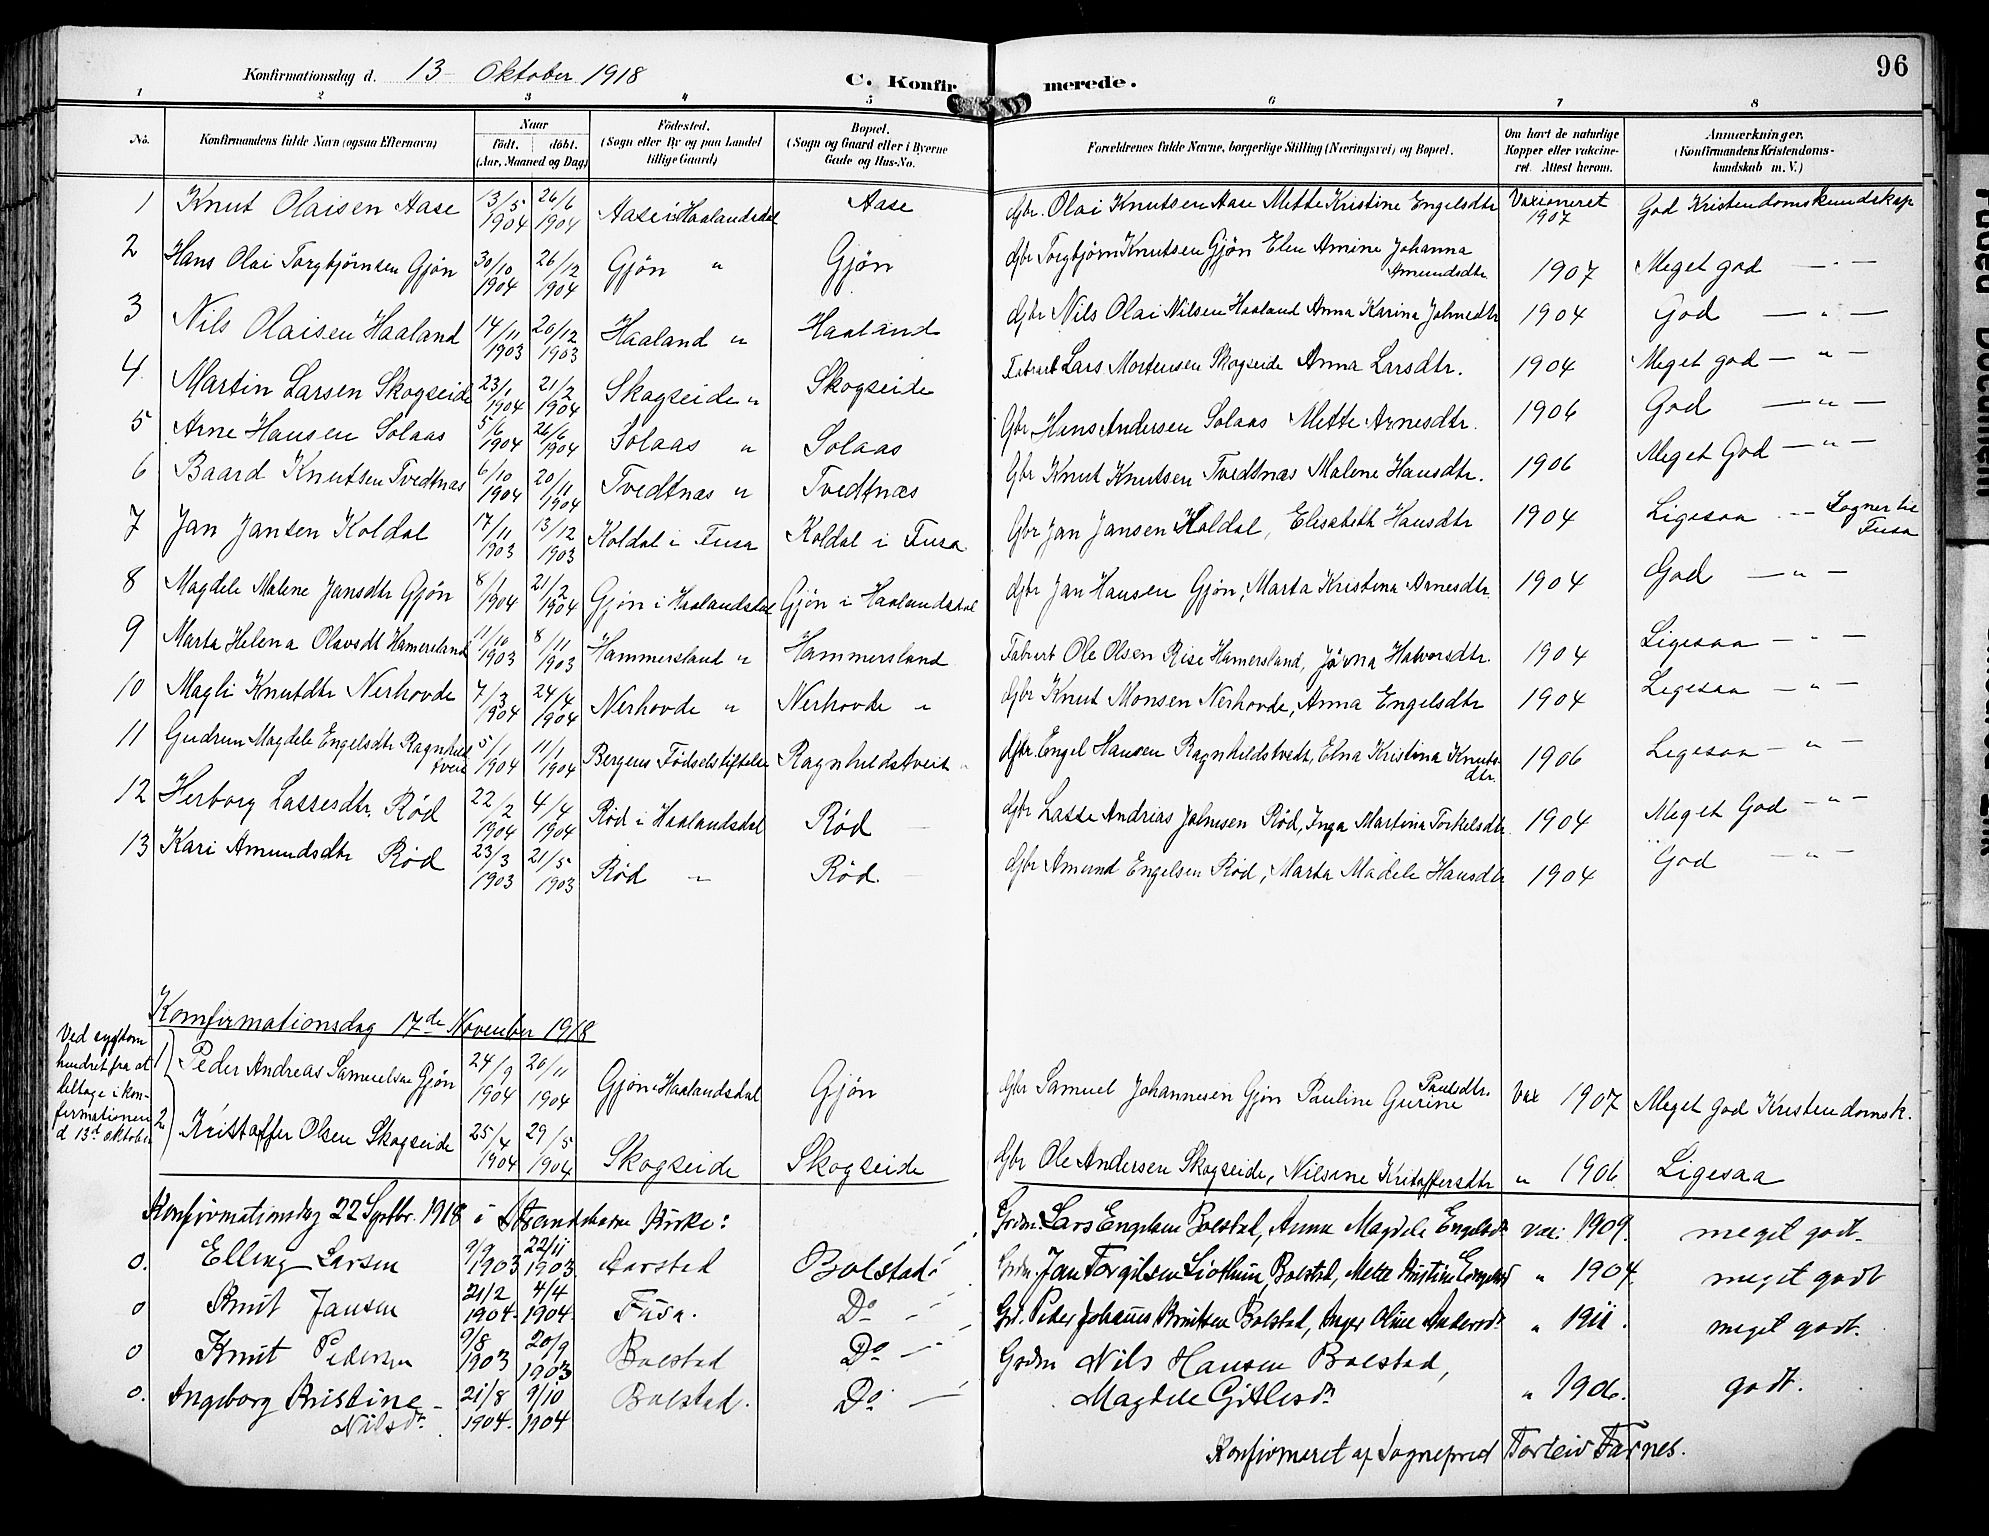 96
Konfirmationsdag d. 13 Oktober 1918 C. Konfirmerede.
1 2 3 4 5 6 7 8
No. Konfirmandens fulde Navn (ogsaa Efternavn) Naar født. døbt. (Aar, Maaned og Dag) Fødested. (Sogn eller By og paa Landet tillige Gaard) Bopæl. (Sogn og Gaard eller i Byerne Gade og Hus-No. Forældrenes fulde Navne, borgerlige Stilling (Næringsvei) og Bopæl. Om havt de naturlige Kopper eller vaccineret. Attest herom. Anmærkninger. (Konfirmandens Kristendomskundskab m. V.)
1 Knut Olaisen Aase 13/5 1904 26/6 1904 Aase i Haalandsdal Aase Gbr. Olai Knutsen Aase Mette Kristine Engelsdtr Vaxioneret 1907 God Kristendomskundskap
2 Hans Olai Torgbjørnsen Gjøn 30/10 1904 26/12 1904 Gjøn " Gjøn Gbr Torgbjørn Knutsen Gjøn Elen Amine Johanna Amundsdtr 1907 Meget god — " —
3 Nils Olaisen Haaland 14/11 1903 20/12 1903 Haaland " Haaland Gbr Nils Olai Nilsen Haaland Anna Karina Johnsdtr 1904 God — " —
4 Martin Larsen Skogseide 23/1 1904 21/2 1904 Skogseide " Skogseide Lars Mortensen Skogseide Anna Larsdtr. 1904 Meget god — " —
5 Arne Hansen Solaas 5/6 1904 26/6 1904 Solaas " Solaas Gbr Hans Andersen Solaas Mette Arnesdtr. 1906 God — " —
6 Baard Knutsen Tvedtnæs 6/10 1904 20/11 1904 Tvedtnæs " Tvedtnæs Gbr Knut Knutsen Tvedtnæs Malene Hansdtr. 1906 Meget God — " —
7 Jan Jansen Koldal 17/11 1903 13/12 1903 Koldal i Fusa Koldal i Fusa Gbr Jan Jansen Koldal, Elisabeth Hansdtr 1904 Ligesaa — Sogner til Fusa
8 Magdele Malene Jansdtr Gjøn 8/1 1904 21/2 1904 Gjøn i Haalandsdal Gjøn i Haalandsdal Gbr Jan Hansen Gjøn, Marta Kristina Arnesdtr. 1904 God — " —
9 Marta Helena Olavsdt Hamersland 11/10 1903 8/11 1903 Hammersland " Hammersland Ole Olsen Rise Hamersland, Jørna Halvorsdtr. 1904 Ligesaa — " —
10 Magli Knutdtr Nerhovde 7/3 1904 24/4 1904 Nerhovde " Nerhovde " Gbr Knut Monsen Nerhovde, Anna Engelsdtr 1904 Ligesaa — " —
11 Gudrun Magdele Engelsdtr Ragnhildstveit 5/1 1904 11/1 1904 Bergens Fødselstiftelse Ragnhildstveit Gbr. Engel Hansen Ragnhildstvedt, Elna Kristina Knutsdtr. 1906 Ligesaa — " —
12 Herborg Lassesdtr. Rød 22/2 1904 4/4 1904 Rød i Haalandsdal Rød Gbr Lasse Andrias Johnsen Rød, Inga Martina Torkelsdtr. 1904 Meget God — " —
13 Kari Amundsdtr Rød 23/3 1903 21/5 1903 Rød " Rød. Gbr Amund Engelsen Rød, Marta Madele Hansdtr 1904 God — " —
Konfirmationsdag 17de November 1918
Ved sygdom
hindret fra at
deltage i kon-
firmationen
d 13de oktober
1 Peder Andreas Samuelsen Gjøn 24/9 1904 20/11 1904 Gjøn i Haalandsdal Gjøn Gbr Samuel Johannesen Gjøn Pauline Gurine Paulsdtr. Vax 1907 Meget god Kristendomsk.
2 Kristoffer Olsen Skogseide 25/4 1904 29/5 1904 Skogseide Skogseide Gbr Ole Andersen Skogseide, Nilsine Kristoffersdtr " 1906 Ligesaa
Konfirmationsdag 22 Septbr. 1918 i Strandebarm Kirke:
0. Elling Larsen 9/9 1903 22/11 1903 Aarstad Bolstad Grdm. Lars Engelsen Bolstad, Anna Magdele Engelsdr vac. 1909. meget godt.
0 Knut Jansen 21/2 1904. 4/4 1904. Fusa. Do Grdm Jan Torgilsen Liothun, Bolstad, Mette Kristine Engelsd " 1904. meget godt
0 Knut Pedersen 9/8 1903 20/9 1903 Bolstad Do Grd. Peder Johannes Knutsen Bolstad, Inger Oline Andersdr " 1911. meget godt.
0. Ingeborg Kristine Nilsdr. 21/8 1904. 9/10 1904 Bolstad. Do Grdm Nils Hansen Bolstad, Magdele Gitlesdr " 1906. godt.
Konfirmeret af Sognepræst Torleiv Farnes.